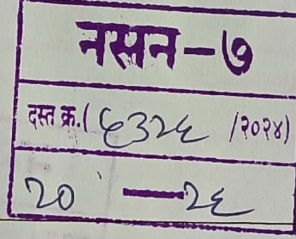 नसन-७
दस्त क्र.( ६३२६ /२०२४)
२० — २६